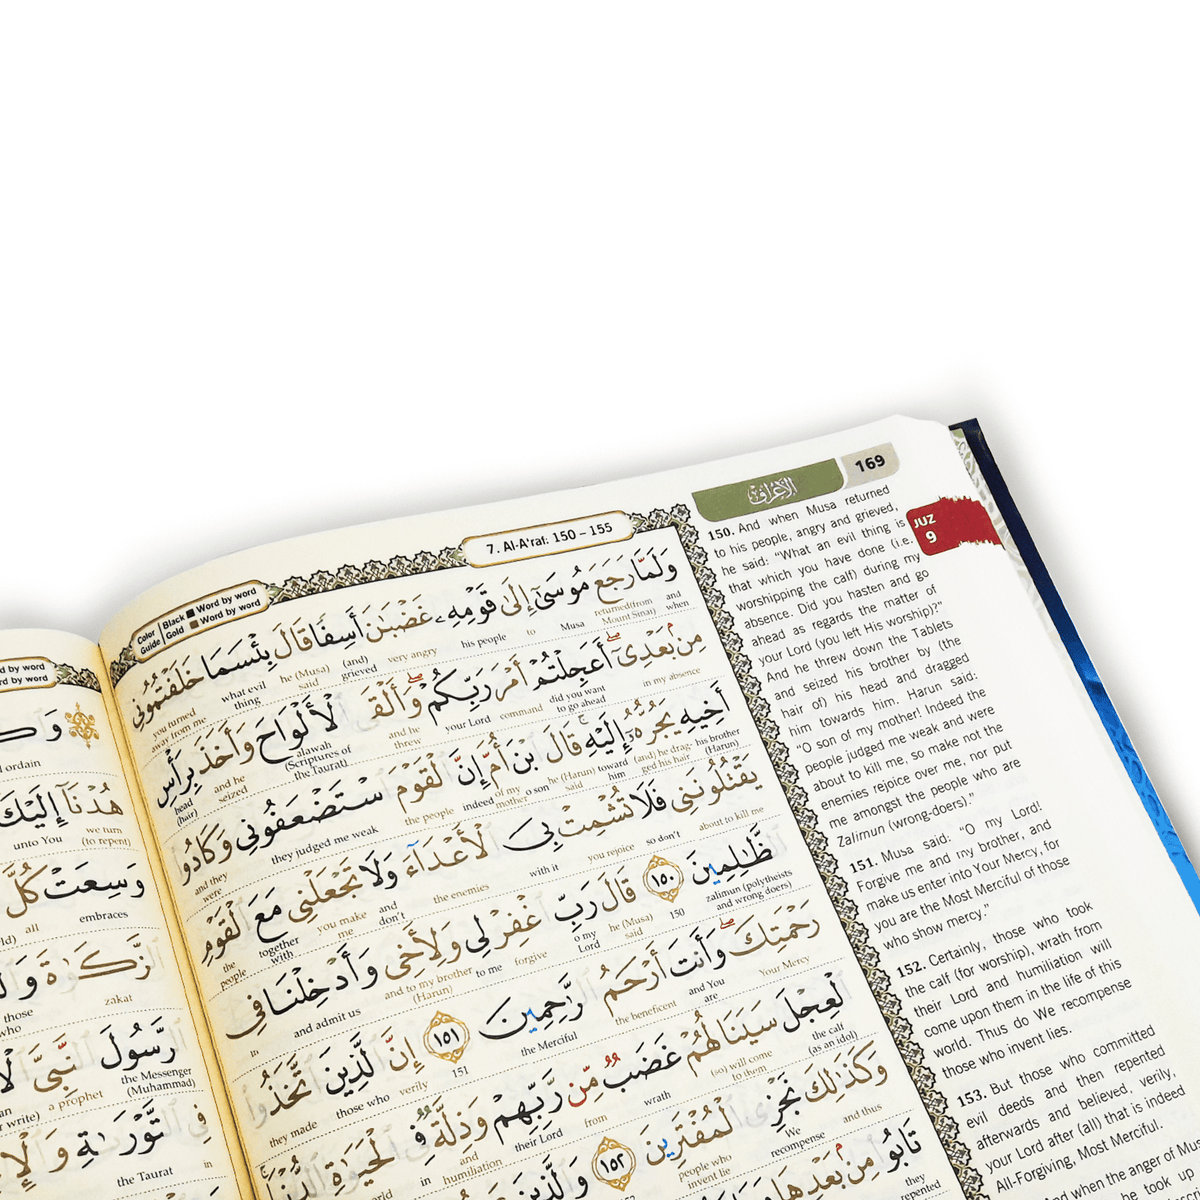 169
الأعراف
JUZ
9
7. Al-A'raf: 150 – 155
Color Guide
Black ■ Word by word
Gold ■ Word by word
وَلَمَّا رَجَعَ مُوسَىٰٓ إِلَىٰ قَوْمِهِۦ غَضْبَٰنَ أَسِفًا قَالَ بِئْسَمَا خَلَفْتُمُونِى
and when returned(from Mount Sinai) Musa to his people very angry (and) grieved he (Musa) said what evil thing you returned away from me
مِنۢ بَعْدِىٓ ۖ أَعَجِلْتُمْ أَمْرَ رَبِّكُمْ ۖ وَأَلْقَى الْأَلْوَاحَ وَأَخَذَ بِرَأْسِ
in my absence did you want to go ahead command your Lord and he threw alawah (Scriptures of the Taurat) and he seized head (hair)
أَخِيهِ يَجُرُّهُۥٓ إِلَيْهِ ۚ قَالَ ابْنَ أُمَّ إِنَّ الْقَوْمَ اسْتَضْعَفُونِى وَكَادُوا
his brother (Harun) (and) he drag- ged his hair toward him he (Harun) said o son of my mother indeed the people they judged me weak and they were
يَقْتُلُونَنِى فَلَا تُشْمِتْ بِىَ الْأَعْدَآءَ وَلَا تَجْعَلْنِى مَعَ الْقَوْمِ
about to kill me so don't you rejoice with it the enemies and don't you make me together with the people
الظَّٰلِمِينَ ١٥٠ قَالَ رَبِّ اغْفِرْ لِى وَلِأَخِى وَأَدْخِلْنَا فِى
zalimun (polytheists and wrong doers) 150 he (Musa) said o my Lord forgive to me and to my brother (Harun) and admit us in
رَحْمَتِكَ ۖ وَأَنتَ أَرْحَمُ الرَّٰحِمِينَ ١٥١ إِنَّ الَّذِينَ اتَّخَذُوا
Your Mercy and You are the beneficent the Merciful 151 verily those who they made
الْعِجْلَ سَيَنَالُهُمْ غَضَبٌ مِّن رَّبِّهِمْ وَذِلَّةٌ فِى الْحَيَوٰةِ الدُّنْيَا
the calf (as an idol) (so) will come to them wrath from their Lord and humiliation in
وَكَذَٰلِكَ نَجْزِى الْمُفْتَرِينَ ١٥٢ وَالَّذِينَ
and thus We recompense people who invent lie
تَابُوا مِنۢ بَعْدِهَا
they repented
150. And when Musa returned
to his people, angry and grieved,
he said: "What an evil thing is
that which you have done (i.e.
worshipping the calf) during my
absence. Did you hasten and go
ahead as regards the matter of
your Lord (you left His worship)?"
And he threw down the Tablets
and seized his brother by (the
hair of) his head and dragged
him towards him. Harun said:
"O son of my mother! Indeed the
people judged me weak and were
about to kill me, so make not the
enemies rejoice over me, nor put
me amongst the people who are
Zalimun (wrong-doers)."
151. Musa said: "O my Lord!
Forgive me and my brother, and
make us enter into Your Mercy, for
you are the Most Merciful of those
who show mercy."
152. Certainly, those who took
the calf (for worship), wrath from
their Lord and humiliation will
come upon them in the life of this
world. Thus do We recompense
those who invent lies.
153. But those who committed
evil deeds and then repented
afterwards and believed, verily,
your Lord after (all) that is indeed
All-Forgiving, Most Merciful.
and when the anger of
word by word
هُدْنَآ إِلَيْكَ
we turn (to repent) unto You
وَسِعَتْ كُلَّ
embraces all
الزَّكَوٰةَ
zakat those who
الرَّسُولَ النَّبِىَّ
the Messenger (Muhammad) a prophet
التَّوْرَىٰةِ
in the Taurat